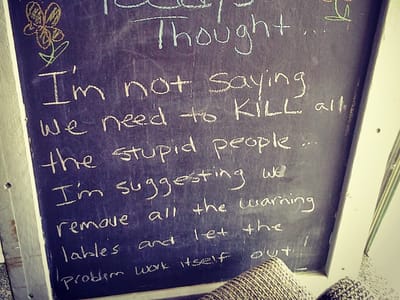 Today's
Thought...
I'm not saying
we need to KILL all
the stupid people...
I'm suggesting we
remove all the warning
lables and let the
problem work itself out!